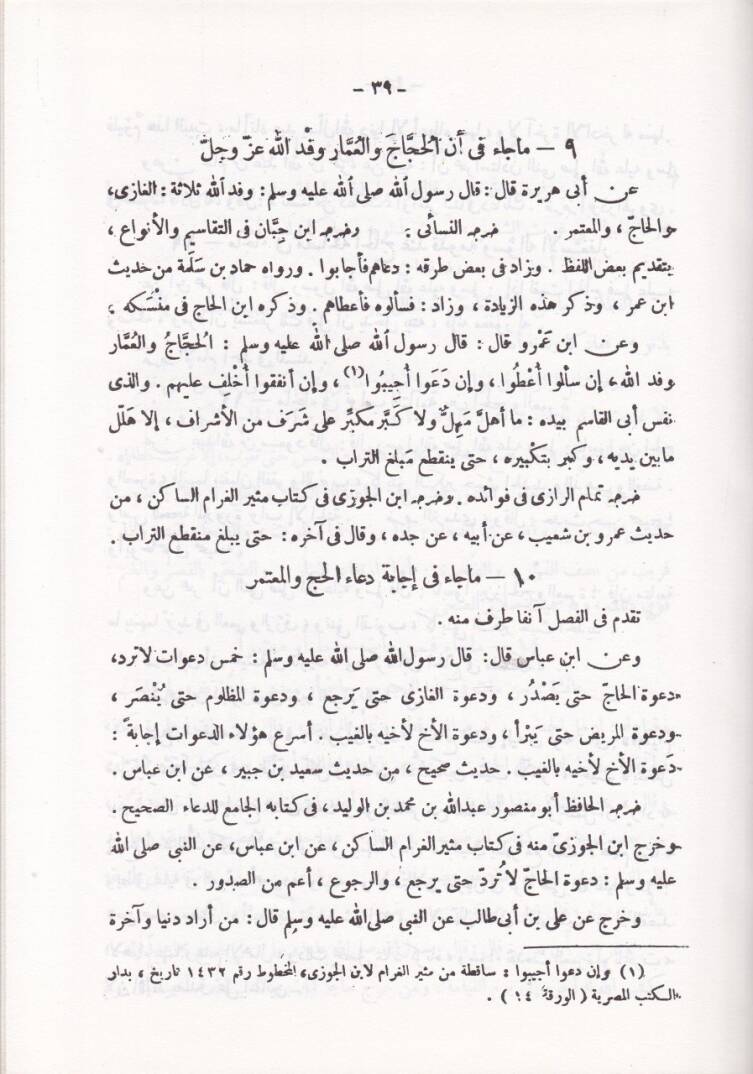 - ٣٩ -
٩ — ماجاء فى أن الحجَّاجَ والعُمَّار وفْد الله عزّ وجلّ
عن أبى هريرة قال : قال رسول الله صلى الله عليه وسلم : وفد الله ثلاثة : الغازى،
والحاجّ ، والمعتمر . خرجه النسائى . وخرجه ابن حِبَّان فى التقاسيم والأنواع ،
بتقديم بعض اللفظ . وزاد فى بعض طرقه : دعاهم فأجابوا . ورواه حماد بن سَلَمة من حديث
ابن عمر ، وذكر هذه الزيادة ، وزاد : فسألوه فأعطاهم . وذكره ابن الحاج فى مَنْسَكه .
وعن ابن عَمْرو قال : قال رسول الله صلى الله عليه وسلم : الحجَّاجُ والعُمَّار
وفد الله ، إن سألوا أُعْطُوا ، وإن دَعَوا أُجِيبُوا(١) ، وإن أنفقوا أُخْلف عليهم . والذى
نفس أبى القاسم بيده : ما أهلَّ مُهِلٌّ ولا كَبَّر مكبّر على شَرَف من الأشراف ، إلا هَلّل
مابين يديه ، وكبر بتكْبيره ، حتى ينقطع مَبلغ التراب .
خرجه تمام الرازى فى فوائده . وخرجه ابن الجوزى فى كتاب مثير الغرام الساكن ، من
حديث عمرو بن شعيب ، عن أبيه ، عن جده ، وقال فى آخره : حتى يبلغ منقطع التراب .
١٠ — ماجاء فى إجابة دعاء الحج والمعتمر
تقدم فى الفصل آنفا طرف منه .
وعن ابن عباس قال : قال رسول الله صلى الله عليه وسلم : خمس دعوات لاترد،
دعوة الحاجّ حتى يَصْدُر ، ودعوة الغازى حتى يَرجع ، ودعوة المظلوم حتى يُنْصَر ،
ودعوة المريض حتى يَبْرأ ، ودعوة الأخ لأخيه بالغيب . أسرع هؤلاء الدعوات إجابةً :
دَعوة الأخ لأخيه بالغيب . حديث صحيح ، من حديث سعيد بن جبير ، عن ابن عباس .
خرجه الحافظ أبو منصور عبدالله بن محمد بن الوليد ، فى كتابه الجامع للدعاء الصحيح .
وخرج ابن الجوزىّ منه فى كتاب مثير الغرام الساكن ، عن ابن عباس، عن النبى صلى الله
عليه وسلم : دعوة الحاجّ لاتُردّ حتى يرجع ، والرجوع ، أعم من الصدور .
وخرج عن على بن أبى طالب عن النبى صلى الله عليه وسلم قال : من أراد دنيا وآخرة
(١) وإن دعوا أجيبوا : ساقطة من مثير الغرام لابن الجوزى، المخطوط رقم ١٤٣٢ تاريخ ، بدار
الكتب المصرية ( الورقة ) .